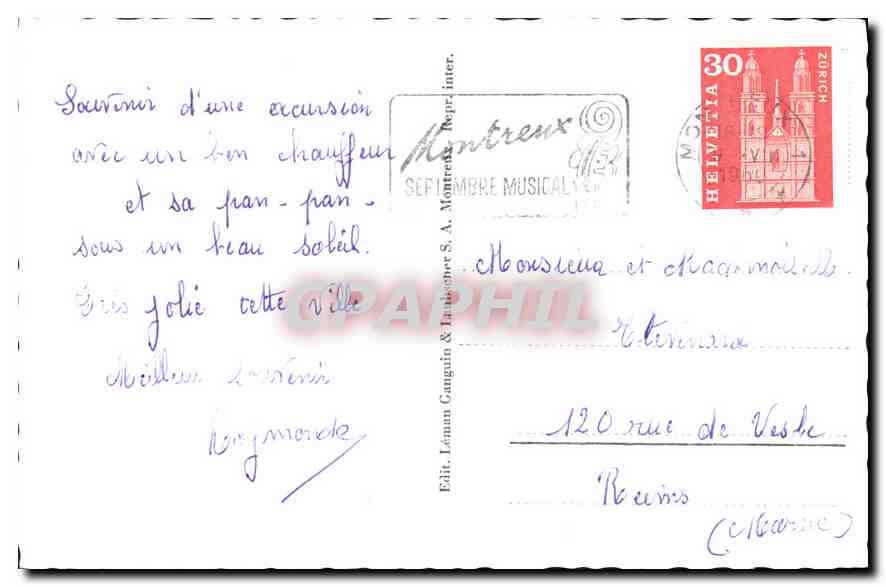 Souvenir d'une excursion
avec un bon chauffeur
et sa pan-pan-
sous un beau soleil.
Très jolie cette ville
Meilleur souvenir
Raymonde
Edit. Léman Ganguin & Laubscher S. A. Montreux. Repr. inter.
Montreux
SEPTEMBRE MUSICAL
30
HELVETIA
ZÜRICH
Monsieur et Mademoiselle
120 rue de Vesle
Reims
(Marne)
CPAPHIL